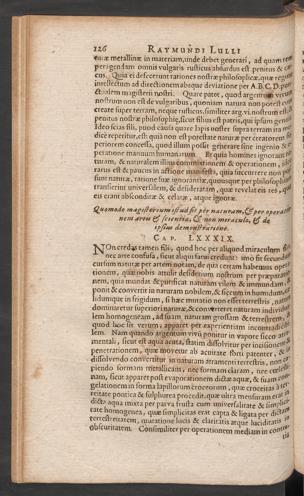 126 RAYMUNDI LULLI
euæ metallinæ in materiam, unde debet generari, ad quam
peragendam omnis vulgaris rusticus absurdus est penitus &
cus. Quia ei desecerunt rationes nostræ philosophicæ, quæ
intellectum ad directionem absque deviatione per A.B.C.D.
magisterii nostri. Quare patet, quod argentum
nostrum non est de vulgaribus, quoniam natura non potest
creare super terram, neque rusticus, similiter arg. vi. nostrum est
penitus nostræ philosophiæ, sicut filius est patris, qui ipsum
Ideo scias fili, quod causa quare lapis noster supra terram ita
dicè reperitur, est: quia non est potestate naturæ per creatorem
periorem concessa, quod illum possit generare sine ingenio &
peratione manuum humanarum. Et quia homines ignorant
turam, & naturalem illius commixtionem & operationem,
rarus est & paucus in actione manifesta, quia succurrere non
sunt naturæ, ratione suæ ignorantiæ, quousque per philosophiam
transferint universalem, & desideratam, quæ revelat eis res,
eis erant absconditæ & celatæ, atque ignotæ.
Quomodo magisterium istud fit per naturam, & per operatio-
nem artis & scientiæ, & non miraculo, & de
ipsius demonstratione.
CAP. LXXXIX.
NOn credas tamen fili, quod hoc per aliquod miraculum
nec arte confusa, sicut aliqui fatui credunt: imo fit secundum
cursum naturæ per artem notam, de qua certam habemus
tionem, quæ nobis attulit desiderium nostrum per præparatio-
nem, quia mundat & purificat naturam vilem & immundam:
ponit & convertit in naturam nobilem, & siccum in humidum, &
lidumque in frigidum, si hæc mutatio non esset terrestris, natura
dominaretur superiori naturæ, & convertere naturam
lem homogeneam, ad suam naturam grossam & terrestrem,
quod hoc sit verum, apparet per experientiam incontradicibi-
lem. Nam quando argentum vivū ponitur in vapore sicco
mentali, sicut est aqua acuta, statim dissolvitur per incisionem &
penetrationem, quæ movetur ab acuitate fluxi puteoter, &
dissolvendo convertitur in naturam atramenti terrestris, non
piendo formam metallicam, nec formam claram, nec cœleste-
nam, sicut apparet post evaporationem dictæ aquæ, & suam con-
gelationem in forma lapillorum croceorum, quæ croceitas à ter-
restritate pontica & sulphurea procedit, quæ ultra mensuram erat in
dicta aqua mixta per parva frusta cum universalitate & simplici-
tate homogenea, quæ simplicitas erat capta & ligata per dictam
terrestreitatem, mutatione lucis & claritatis atque luciditatis in
obscuritatem. Consimiliter per operationem mediam in contra-